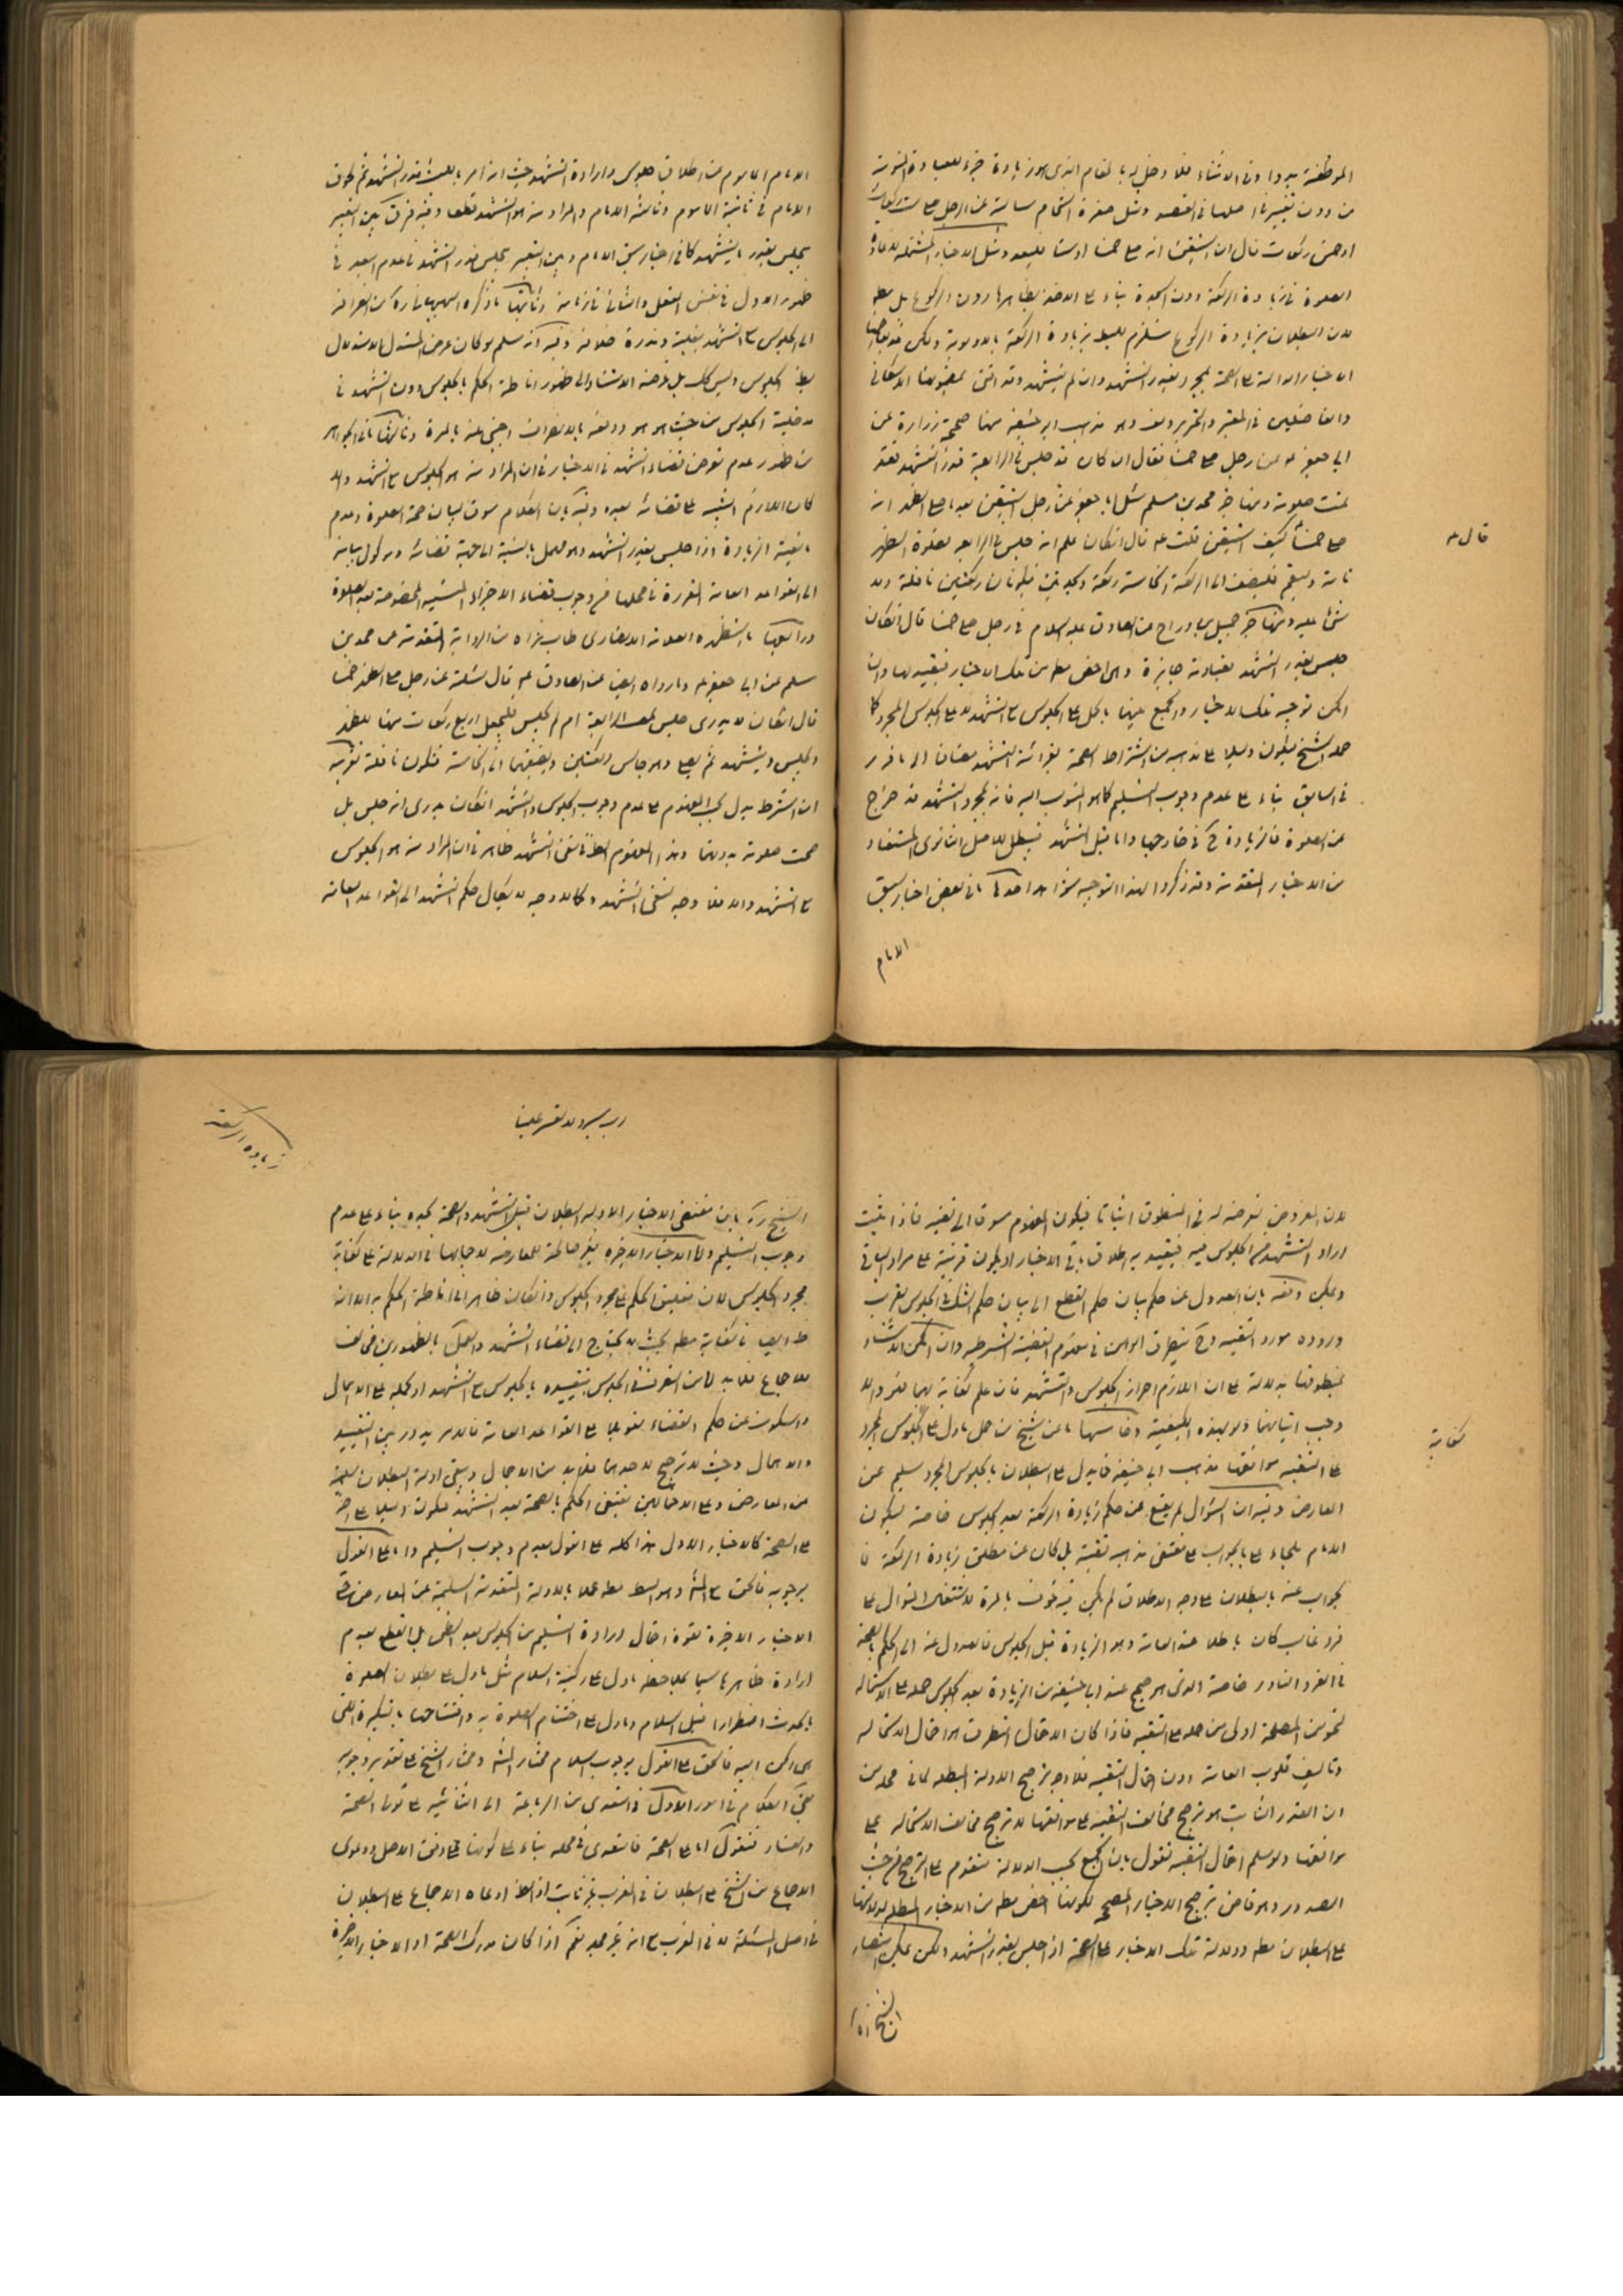 الموظفة يدوا وفى الاثناء فلا دخل له بالمقام الذى هو زيادة جزء للعبادة
من دون تغيير لما عليها فى القصد ومثل مضمرة الشحام سالته عن الرجل صلى ست ركعات
او خمس ركعات قال ان استيقن انه صلى خمسا او ستا فليعد ومثل الاخبار المشتملة
الصلوة فى زيادة الركعة دون السجدة بناء على الاخذ بظاهرها دون الركوع بل
لان البطلان بزيادة الركوع مستلزم للبطلان بزيادة الركعة بالاولوية ولكن
الاخبار الدالة على الصحة بمجرد بقدر التشهد وان لم يتشهد وقد افتى بمضمونها الاسكافى
والفاضلين فى المعتبر والتحرير وهو مذهب ابى حنيفة منها صحيحة زرارة عن
ابى جعفر عن رجل صلى خمسا فقال ان كان قد جلس فى الرابعة قدر التشهد فقد
تمت صلوته ومنها خبر محمد بن مسلم سئل ابا جعفر عن رجل استيقن بعد ما صلى الظهر انه
صلى خمسا كيف استيقن قلت علم قال ان كان علم انه جلس فى الرابعة فصلوة الظهر
تامة وليقم فليضف الى الركعة الخامسة ركعة وسجدتين فيكونان ركعتين نافلة ولا
شئ عليه ومنها خبر جميل بن دراج عن الصادق عليه السلام فى رجل صلى خمسا قال ان كان
جلس بقدر التشهد فعبادته جايزة وهى اخص من تلك الاخبار فيقيد بها وان
امكن توجيه تلك الاخبار والجمع بينهما بالحمل على الجلوس مع التشهد لا على الجلوس المجرد كما
حمله الشيخ فيكون دليلا على مذهبه من اشتراط الصحة بقرائة التشهد مضافا الى ما قرر
فى السابق بناء على عدم وجوب التسليم كما هو المنسوب اليه فانه بمجرد التشهد قد خرج
عن الصلوة فالزيادة ح فى خارجها واما قبل التشهد فيبطل للاصل الثانوى المستفاد
من الاخبار المتقدمة وقد ذكروا لهذا التوجيه شواهد احدها ما فى بعض اخبار سبق
الامام
قال
الامام الماموم من اطلاق جلوس وارادة التشهد حيث انه امر بالمكث بقدر التشهد ثم لحوق
الامام فى ثانية الماموم وثالثة الامام والمراد منه هو التشهد قطعا وفيه فرق بين التعبير
بجلس بقدر ما يتشهد كما فى اخبار سبق الامام وبين التعبير بجلس قدر التشهد فى عدم البعد فى
ظهور الاول فى نفس الفعل والثانى فى زمانه وثانيها ما ذكره البهبهانى ره من انصرافه
الى الجلوس مع التشهد بغلبة وندرة خلافه وفيه انه مسلم لو كان غرض المستدل الاستدلال
بلفظ الجلوس وليس كك بل غرضه الاستناد الى ظهور اناطة الحكم بالجلوس دون التشهد فى
مدخلية الجلوس من حيث هو هو ودفعه بالانصراف اجنبى عنه بالمرة وثالثها ما فى الجواهر
من ظهور عدم تعرض قضاء التشهد فى الاخبار فى ان المراد منه هو الجلوس مع التشهد والا
كان اللازم التنبيه على قضائه بعده وفيه ان الكلام مسوق لبيان صحة الصلوة وعدم
مانعية الزيادة اذا جلس بقدر التشهد وهو مهمل بالنسبة الى جهة قضائه وموكول بيانه
الى القواعد العامة المقررة فى محلها من وجوب قضاء الاجزاء المنسية المخصوصة بعد الصلوة
ورابعها ما استظهره العلامة الانصارى طاب ثراه من الرواية المتقدمة عن محمد بن
مسلم عن ابى جعفر وما رواه ايضا عن الصادق ع قال سئلته عن رجل صلى الظهر خمسا
قال ان كان لا يدرى جلس فى الرابعة ام لم يجلس فليجعل اربع ركعات منها للظهر
ويجلس ويتشهد ثم يصلى وهو جالس ركعتين ويضيفهما الى الخامسة فتكون نافلة بتقريب
ان الشرط يدل بحسب المفهوم على عدم وجوب الجلوس والتشهد ان كان يدرى انه جلس بل
صحت صلوته بدونهما وهذا المفهوم ايضا فى نفى التشهد ظاهر فى ان المراد منه هو الجلوس
مع التشهد والا فلا وجه لنفى التشهد كما لا وجه لايكال حكم التشهد الى القواعد العامة
لان المفروض تعرضه له فى المنطوق اثباتا فيكون المفهوم مسوقا الى نفيه فاذا ثبت
ارادة التشهد من الجلوس فيه فيقيد به اطلاق باقى الاخبار او يكون قرينة على مراد الباقى
ويمكن دفعه بان العدول عن حكم بيان حكم القطع الى بيان حكم الشك فى الجلوس يقرب
وروده مورد التقية وح يتطرق الوهن فى مفهوم القضية الشرطية وان امكن الاستناد
بمنطوقها بدلالة على ان اللازم احراز الجلوس والتشهد فان علم كفاية بهما فهو والا
وجب اتيانهما ولو بهذه الكيفية وخامسها ما عن الشيخ من حمل ما دل على الجلوس المجرد
على التقية لموافقتها مذهب ابى حنيفة فما يدل على البطلان بالجلوس المجرد سليم عن
المعارض وفيه ان السؤال لم يقع عن حكم زيادة الركعة بعد الجلوس خاصة ليكون
الامام ملجاء على الجواب على مقتضى مذهبه تقية بل كان عن مطلق زيادة الركعة فا
لجواب عنه بالبطلان على وجه الاطلاق لم يكن فيه خوف بالمرة
فرد غالب كان باطلا عند العامة وهو الزيادة قبل الجلوس فالعدول عنه الى الحكم بالصحة
فى الفرد النادر خاصة الذى هو صحيح عند ابى حنيفة من الزيادة بعد الجلوس حمله على الاستمالة
لنحو من المصلحة اولى من حمله على التقية فاذا كان الاحتمال المتطرق هو احتمال الاستمالة
وتاليف قلوب العامة دون احتمال التقية فلا وجه لترجيح الادلة المبطلة لما فى محله من
ان القدر الثابت هو ترجيح مخالف التقية على موافقها لا ترجيح مخالف الاستمالة على
موافقها ولو سلم احتمال التقية نقول بان الجمع بحسب الدلالة مقدم على الترجيح من حيث
الصدور وهو قاض بترجيح الاخبار المصححة لكونها اخص من الاخبار المبطلة لدلالتها
على البطلان ودلالة تلك الاخبار على الصحة اذا جلس بقدر التشهد ولكن يمكن
كفاية
رب يسر ولا تعسر علينا
زيادة الركعة
الشيخ ره بان مقتضى الاخبار الاولة البطلان قبل التشهد والصحة بعده بناء على عدم
وجوب التسليم واما الاخبار الاخيرة غير صالحة للمعارضة لاجمالها فى الدلالة على كفاية
مجرد الجلوس لان تعليق الحكم على مجرد الجلوس وان كان ظاهرا فى اناطة الحكم به الا انه
فى كفاية بحيث لا يحتاج الى قضاء التشهد والعمل بالظهورين مخالف
للاجماع فلا بد اما من التصرف فى الجلوس بتقييده بالجلوس مع التشهد او حمله على الاهمال
والسكوت عن حكم القضاء تعويلا على القواعد العامة فالامر يدور بين التقييد
والاهمال وحيث لا ترجيح لاحدهما فلا بد من الاجمال ويبقى ادلة البطلان سليمة
عن المعارض وعلى الاحتمالين مقتضى الحكم بالصحة بعد التشهد فيكون دليلا
على الصحة كالاخبار الاول هذا كله على القول بعدم وجوب التسليم واما على القول
بوجوبه فالحق مع المشهور وهو البطلان عملا بالادلة المتقدمة السليمة عن المعارض حتى
الاخبار الاخيرة لقوة احتمال ارادة التسليم من الجلوس بعد التشهد بل القطع بعدم
ارادة ظاهرها سيما بملاحظة ما دل على ركنية السلام مثل ما دل على بطلان الصلوة
بالحدث اضطرارا قبل السلام وما دل على اختتام الصلوة به وافتتاحها بالتكبيرة
فالحق على القول بوجوب السلام مختار المشهور ومختار الشيخ على تقدير وجوبه
بقى الكلام فى امور الاول فى التعدى من الرباعية الى الثنائية على قولى الصحة
والفساد فنقول اما على الصحة فالتعدى فى محله بناء على كونها على وفق الاصل ودعوى
الاجماع من الشيخ على البطلان فى المغرب غير ثابت اذ الظاهر ادعاه الاجماع على البطلان
فى اصل المسئلة لا فى المغرب مع انه غير مجد نعم اذا كان مدرك الصحة الاخبار الاخيرة